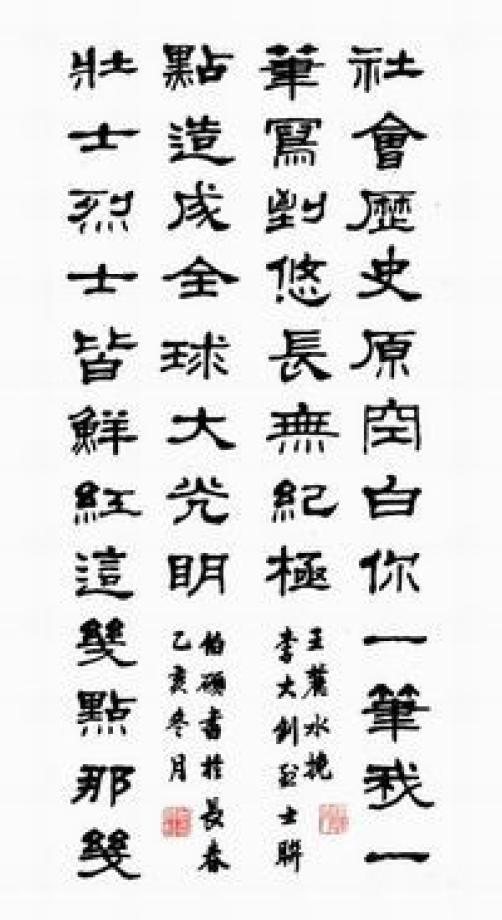 社會歷史原空白你一筆我一
筆寫到悠長無紀極
王麓水挽
李大釗烈士聯
壯士烈士皆鮮紅這幾點那幾
點造成全球大光明
伯碩書於長春
乙亥冬月